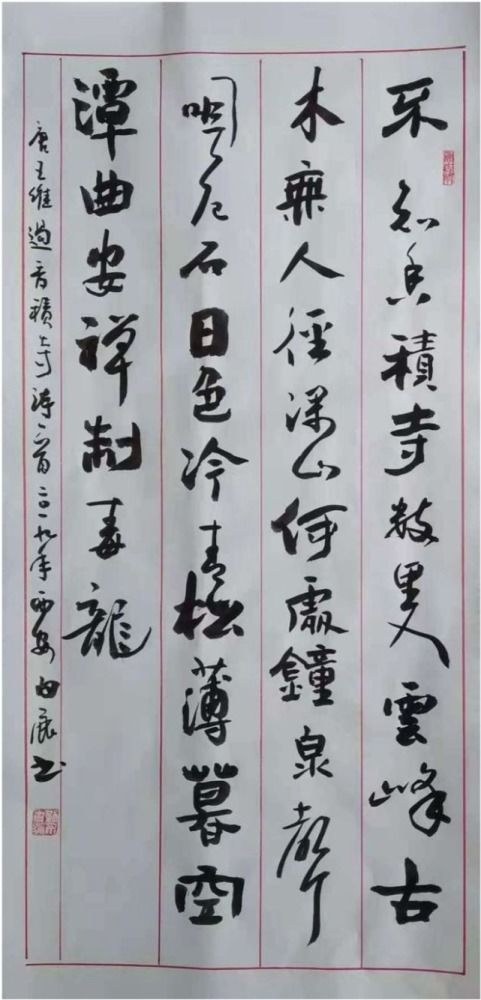 不知香積寺數里入雲峰古
木無人徑深山何處鐘泉聲
咽危石日色冷青松薄暮空
潭曲安禪制毒龍
唐王維過香積寺詩一首二〇一九年西安白展书